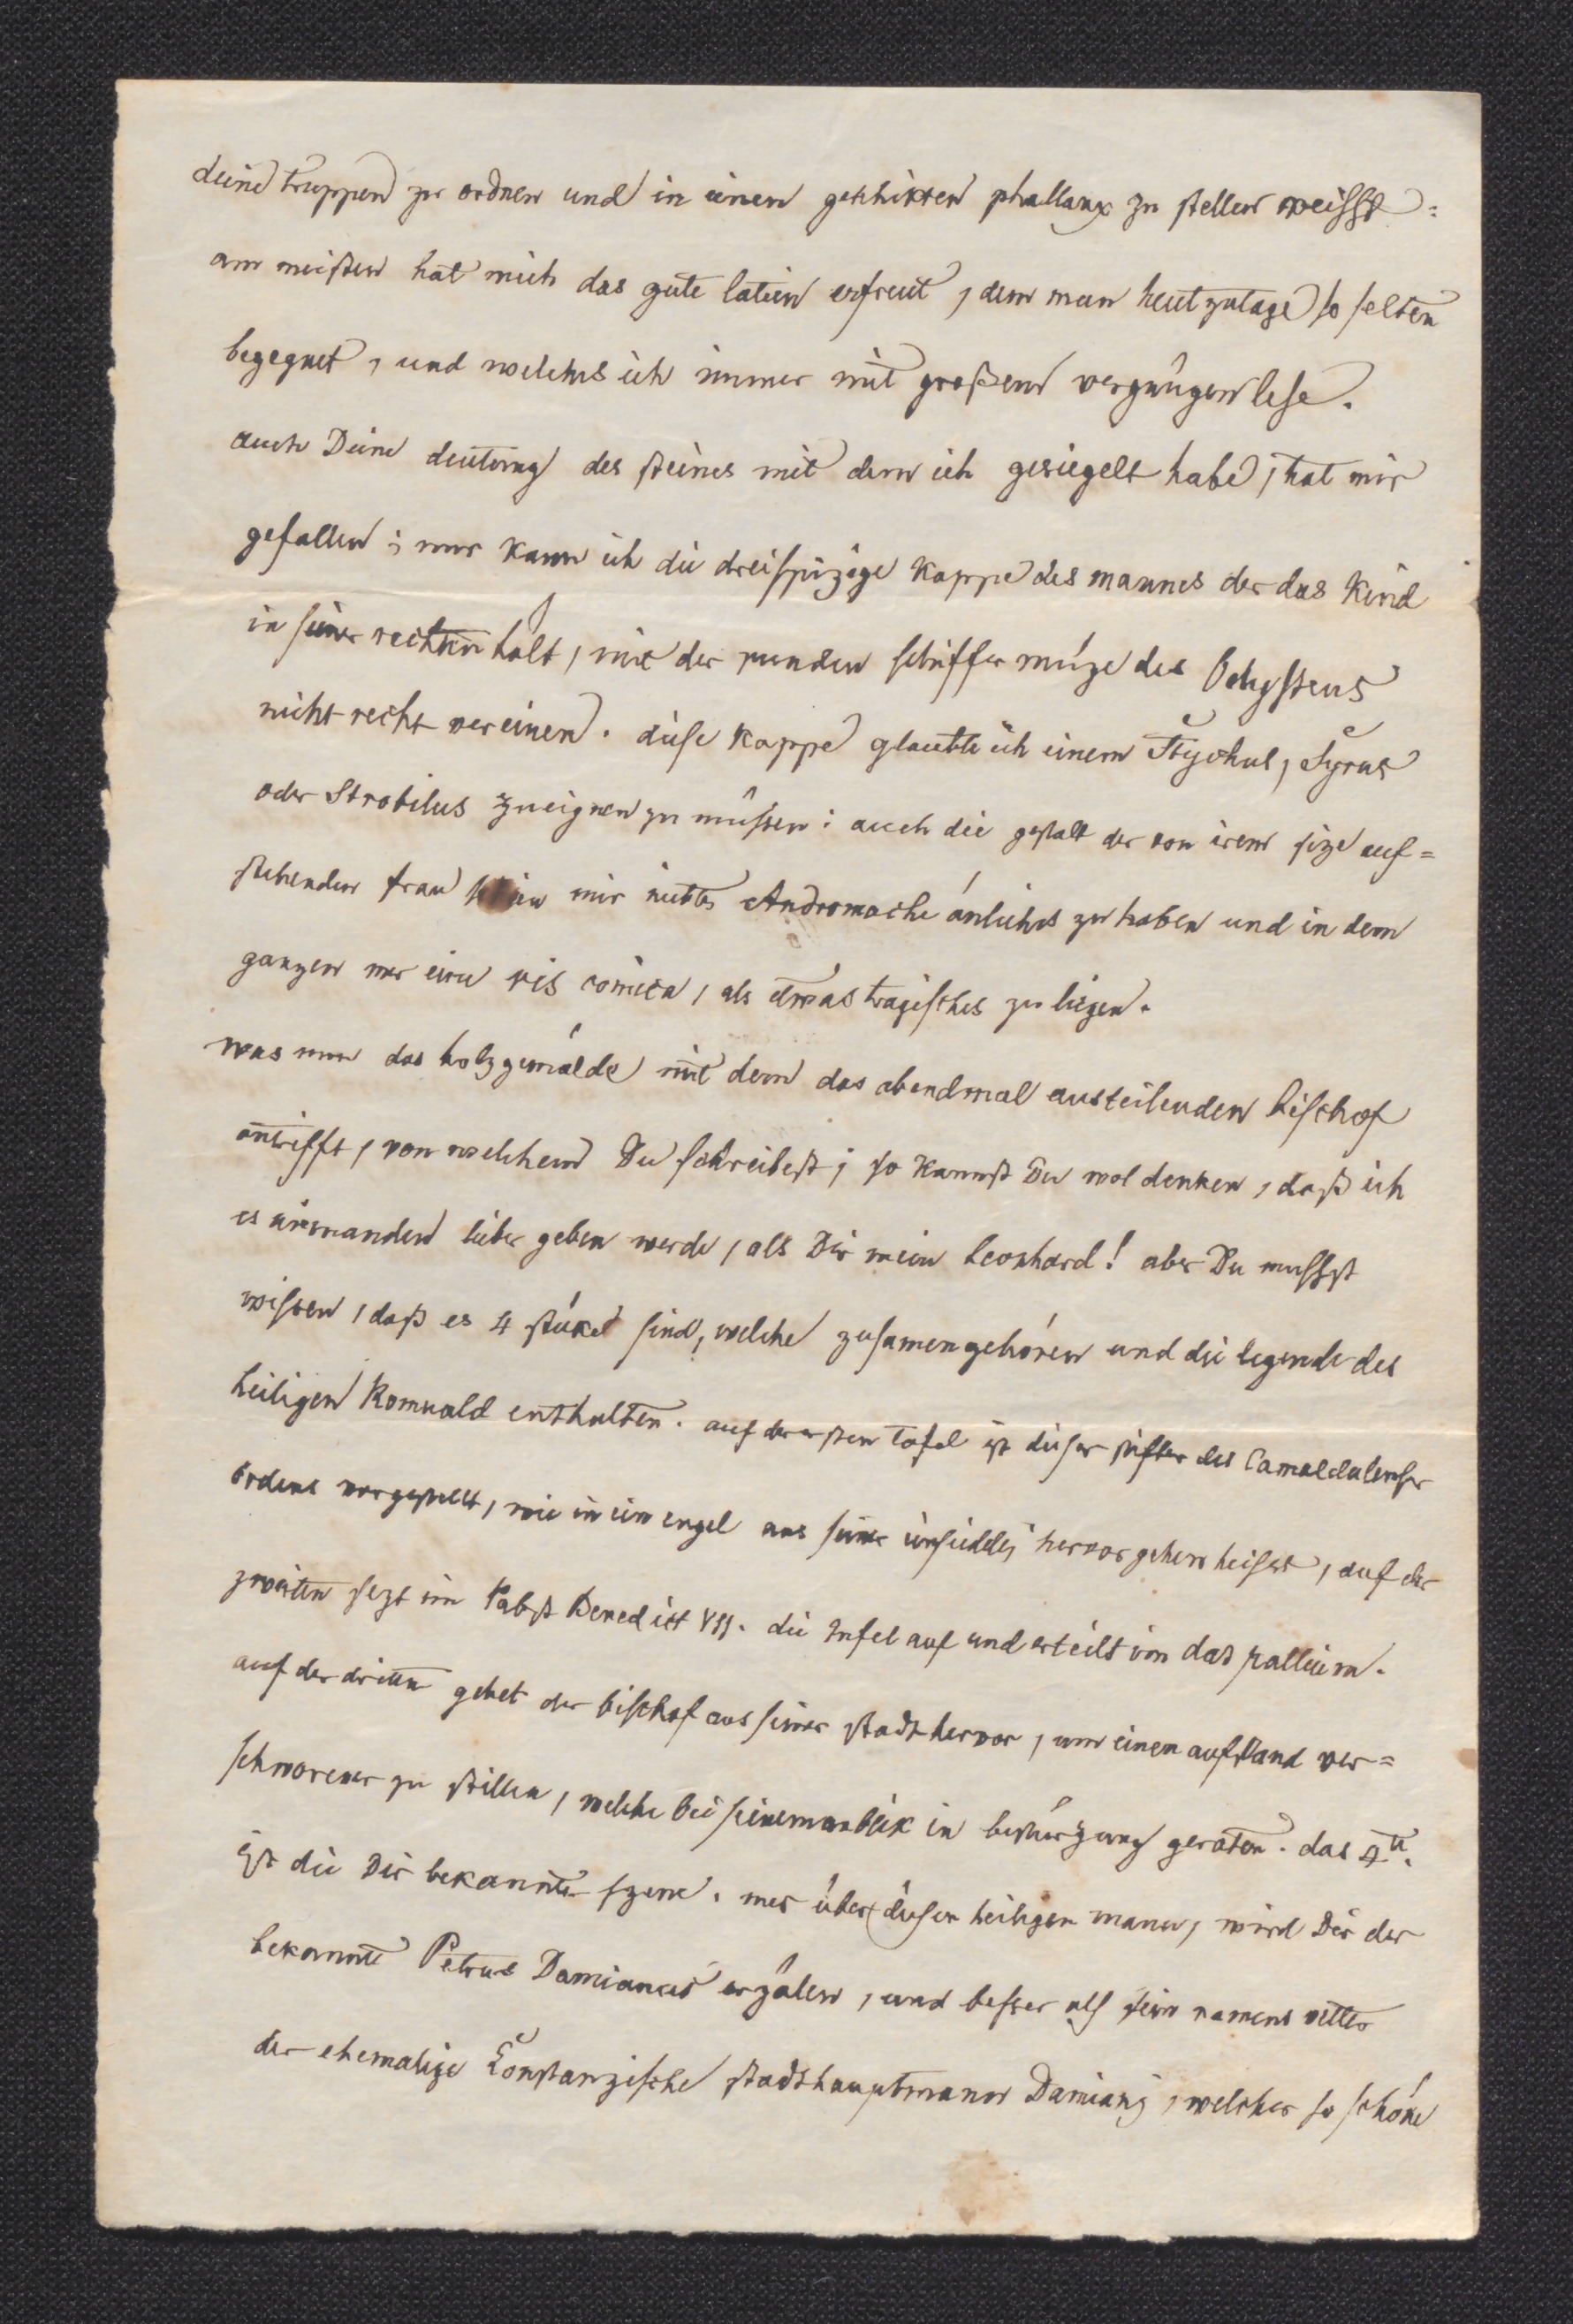 deine truppen zu ordnen und in einen geschikten phallanx zu stellen weißst:
am meisten hat mich das gute latein erfreut, dem man heutzutage so selten
begegnet, und welches ich immer mit großem vergnügen lese.
auch Deine deutung des steines mit dem ich gesiegelt habe, hat mir
gefallen; nur kann ich die dreispizige kappe des mannes der das kind
in seiner rechten hält, mit der runden schiffer müze des Odysseus
nicht recht vereinen. diese kappe glaubte ich einem Stychus, Syrus
oder Strobilus zueignen zu müssen: auch die gestalt der von irem size auf=
stehenden frau schien mir nichts Andromache änliches zu haben und in dem
ganzen mer eine vis comica, als etwas tragisches zu ligen.
was nun das holzgemälde mit dem das abendmal austeilenden bischof
antrifft, von welchem Du schreibest; so kannst Du wol denken, daß ich
es niemanden lieber geben werde, als Dir mein Leonhard! aber Du mussst
wissen, daß es 4 stüke sind, welche zusamengehören und die legende des
heiligen Romuald enthalten. auf der ersten tafel ist dieser stifter des Camaldulenser
ordens vorgestellt, wie in ein engel aus seiner einsiedelej hervor gehen heisst, auf der
zweiten sezt im Pabst Benedict VII. die Infel auf und erteilt im das pallium.
auf der dritten gehet der bischof aus seiner stadt hervor, um einen aufstand ver=
schworener zu stillen, welche bei seinem anblik in bestürzung geraten. das 4te.
ist die Dir bekannte szene. mer über diesen heiligen mann, wird Dir der
bekannte Petrus Damianus erzälen, und besser als sein namens vetter
der ehemalige Constanzische stadthauptmann Damianj, welcher so schöne